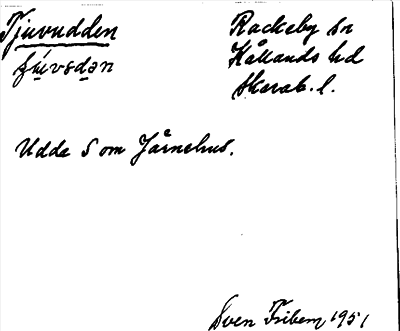 Tjuvudden
Rackeby sn
Kållands hd
Skarab. l.
Udde S om Järnehus.
Sven Friberg 1951